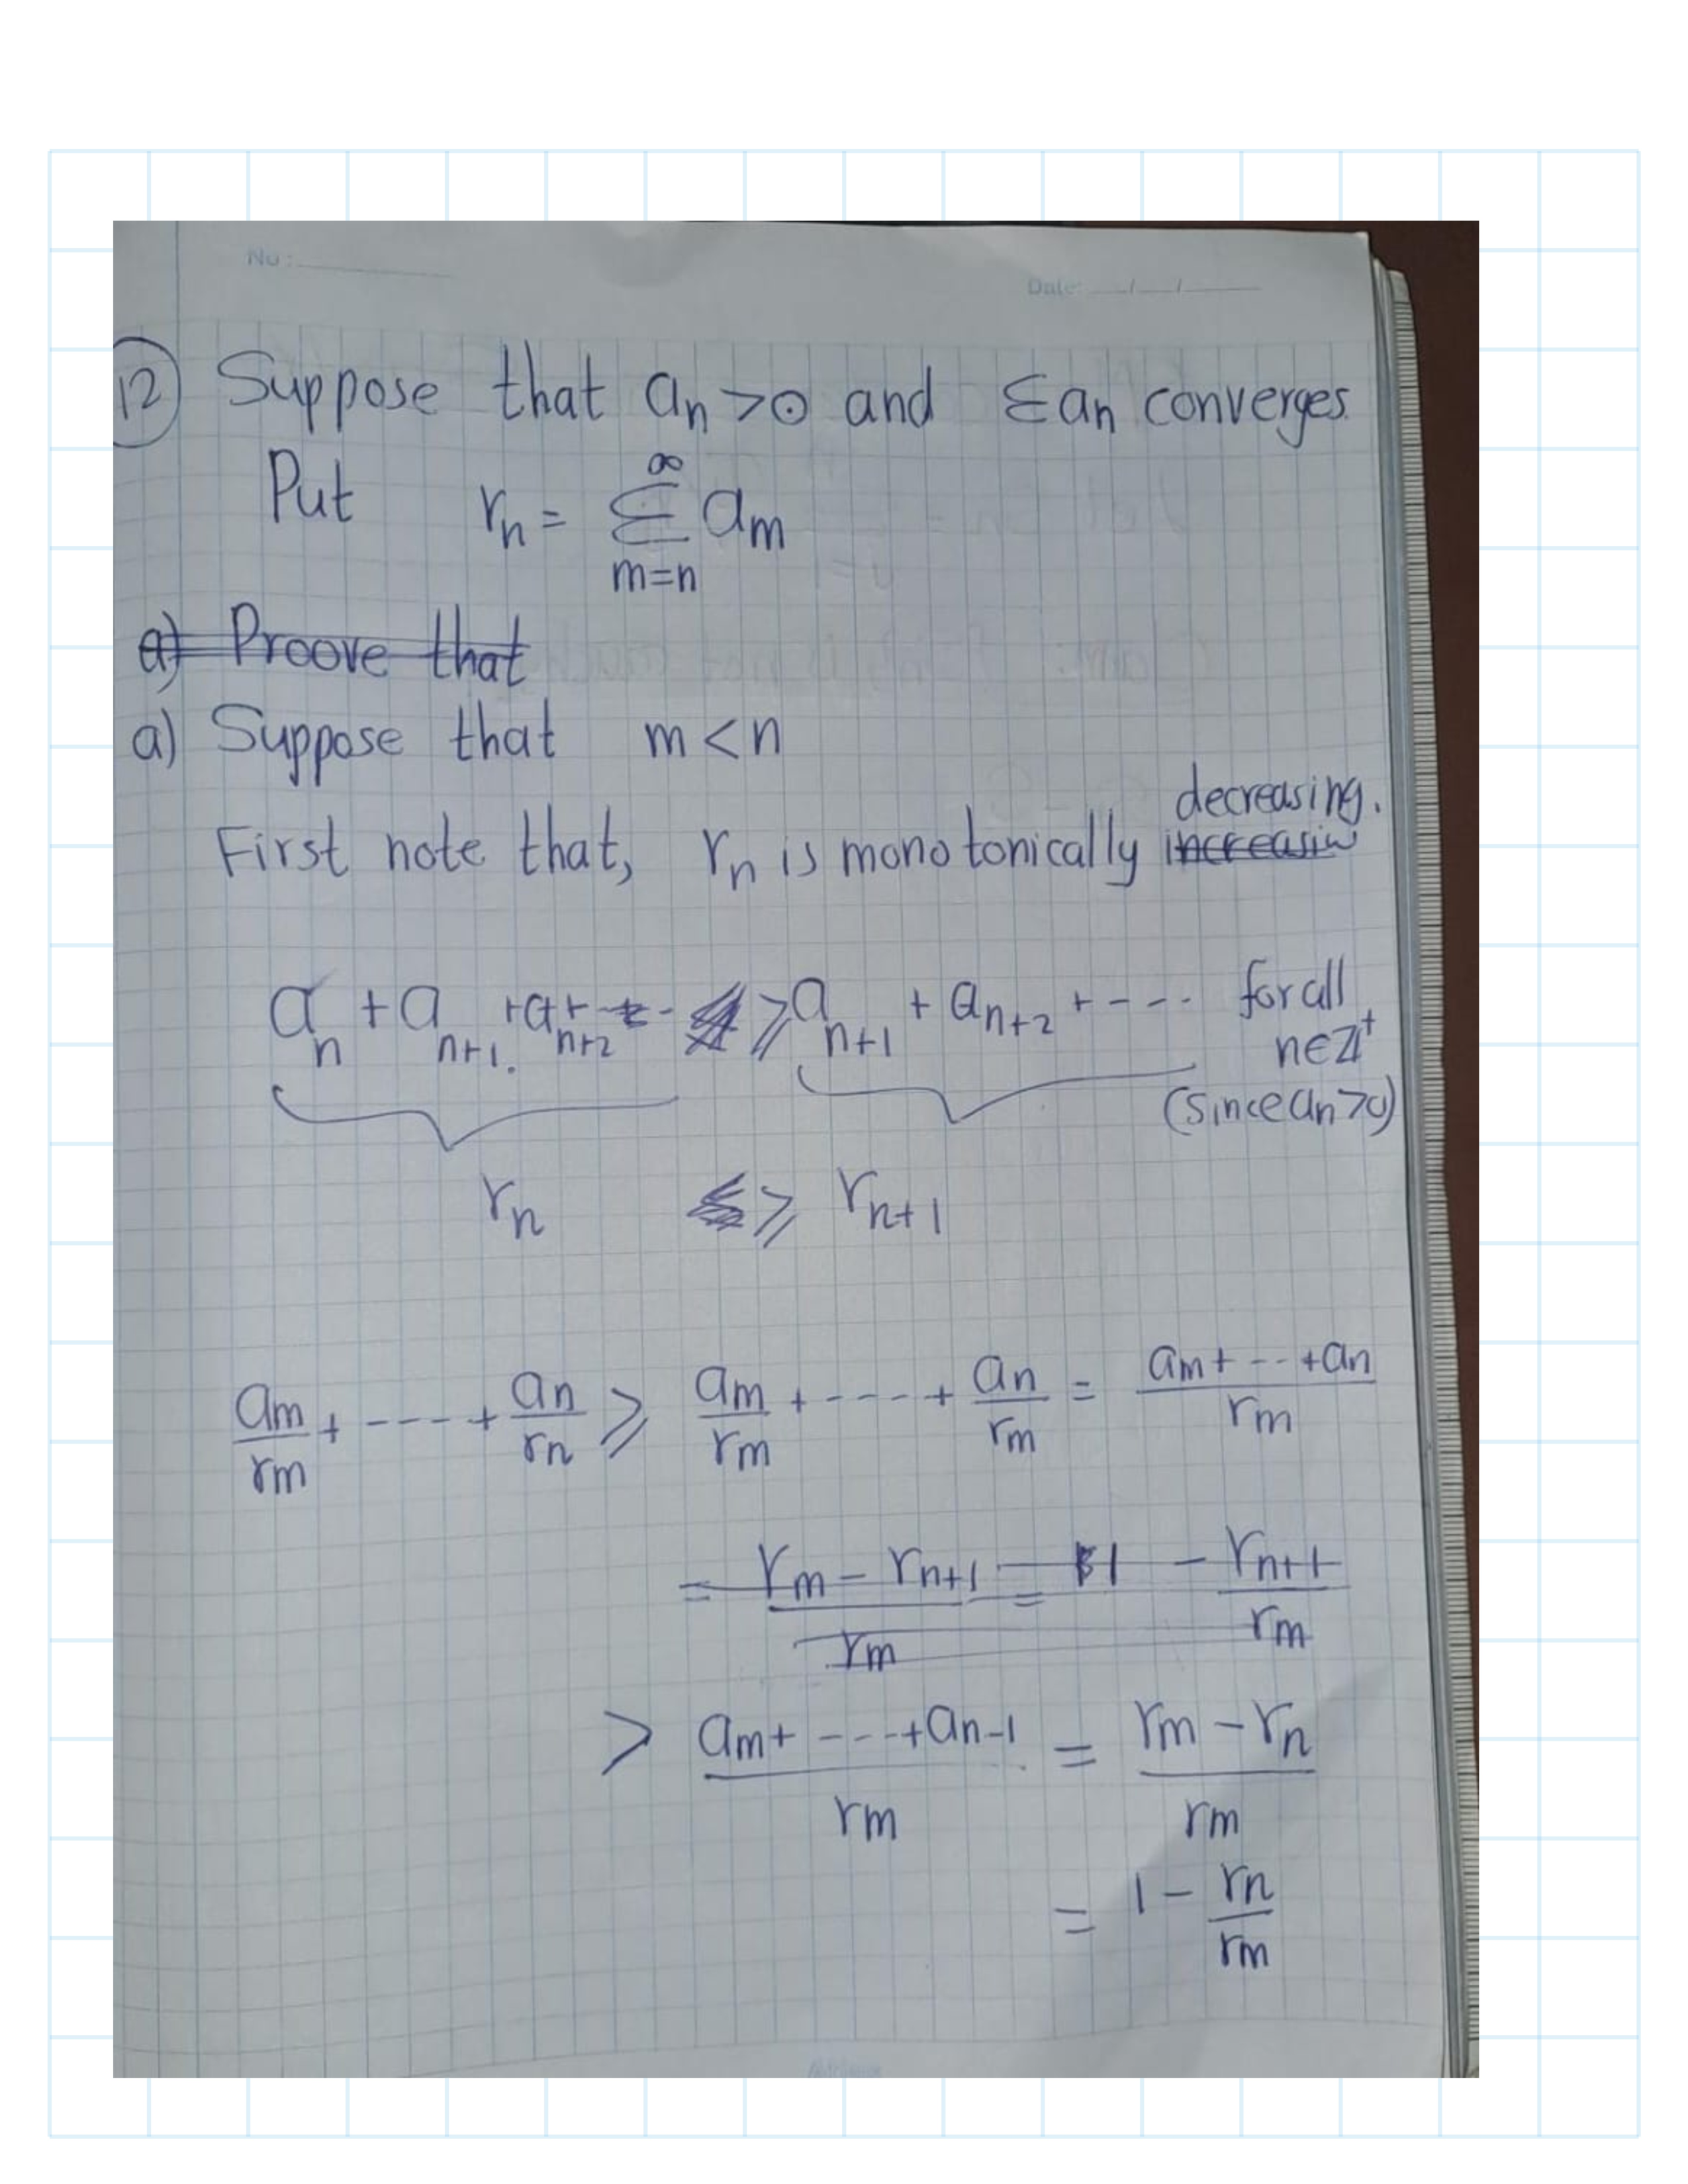 No:
Date: __/__/____
12 Suppose that an > 0 and Σan converges.
Put rn = Σ_{m=n}^{∞} am
a) Proove that
a) Suppose that m < n
First note that, rn is monotonically increasin decreasing.
a_n + a_{n+1} + a_{n+2} + --- ⩾ a_{n+1} + a_{n+2} + ---- for all n∈Z⁺
(since an>0)
r_n ⩾ r_{n+1}
am/rm + ---- + an/rn ⩾ am/rm + ---- + an/rm = (am + --- + an)/rm
= (rm - r_{n+1})/rm = 1 - r_{n+1}/rm
> (am + ---- + a_{n-1})/rm = (rm - rn)/rm
= 1 - rn/rm